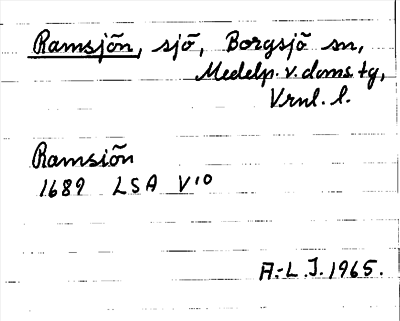 Ramsjön, sjö, Borgsjö sn,
Medelp. v. doms. tg,
Vrnl. l.
Ramsiön
1689 LSA V10
A.-L. J. 1965.